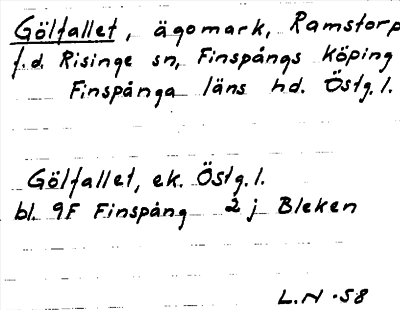 Gölfallet, ägomark, Ramstorp
f.d. Risinge sn, Finspångs köping
Finspånga läns hd. Östg.l.
Gölfallet, ek. Östg.l.
bl. 9F Finspång 2 j Bleken
L.N -58